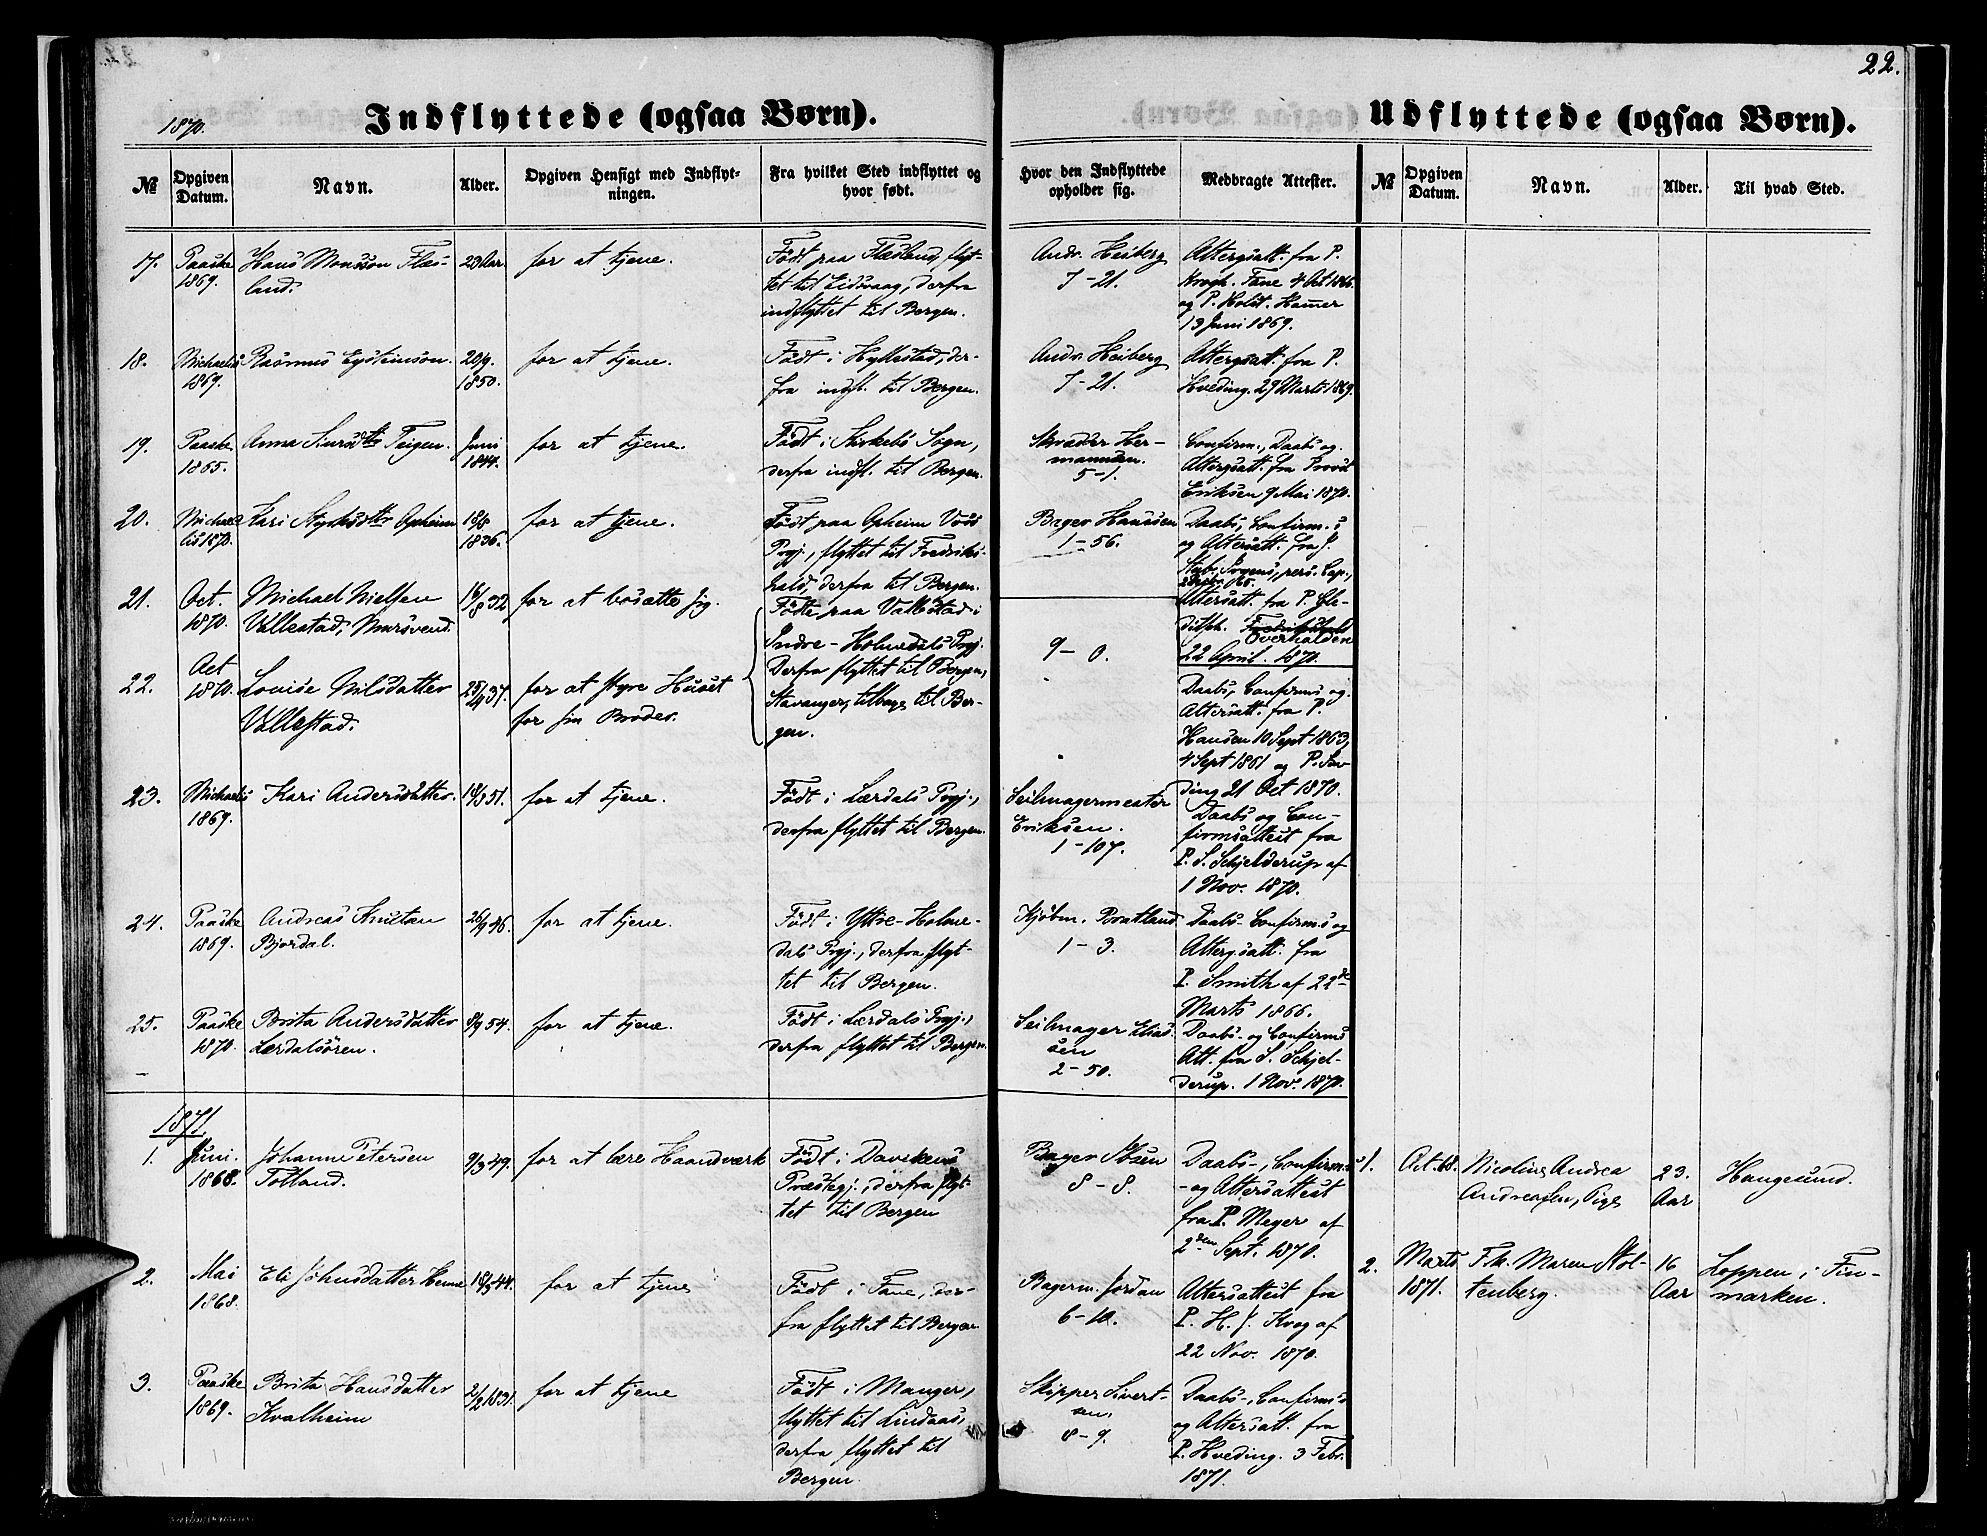 22.
1870. Indflyttede (ogsaa Børn).
Udflyttede (ogsaa Børn).
№ Opgiven Datum. Navn. Alder. Opgiven Hensigt med Indflytningen. Fra hvilket Sted indflyttet og hvor født. Hvor den Indflyttede opholder sig. Medbragte Attester.
№ Opgiven Datum. Navn. Alder. Til hvad Sted.
17. Paaske 1869. Hans Monsson Flæsland. 23 Aar. for at tjene. Født paa Flesland, flyttet til Eidsvaag, derfra indflyttet til Bergen. Andr. Heiberg 7-21. Altergsatt. fra P. Krogh. Fane 4 Oct 1866 og P. Holst. Hamer 13 Juni 1869.
18. Michaelis 1869. Rasmus Eysteinson. 20/9 1850. for at tjene. Født i Hyllestad, derfra indfl. til Bergen. Andr. Heiberg 7-21. Altergsatt. fra P. Hveding. 29 Marts 1869.
19. Paaske 1865. Anna Teigen. Juni 1844. for at tjene. Født i Kirkebø Sogn, derfra indfl. til Bergen. Skrædder Hermannsen. 5-1. Confirm., Daabs og Altergsatt. fra Provst Eriksen 9 Mai 1870.
20. Michaelis 1870. Kari Opheim 1836. for at tjene. Født paa Opheim Voss Prgj., flyttet til Fredrikshald, derfra til Bergen. Bager Hanssen 1-56. Daabs, Confirm.s og Altersatt. fra pers. Cap., Altersatt. fra P. Overhalden 22 April. 1870.
21. Oct. 1870. Michael Nielsen Vallestad, Mursvend. 16/8 32 for at bosætte sig. Fødte paa Vallestad i Indre-Holmedals Prgj. Derfra flyttet til Bergen, Stavanger, tilbage til Bergen. 9-0.
22. Oct 1870. Lovise Nilsdatter Vallestad. 37. for at styre Huset for sin Broder. Daabs, Confirms og Altersatt. fra P. Hansen 10 Sept 1863, 4 Sept 1861 og P. 21 Oct 1870.
23. Michaelis 1869. Kari Andersdatter. 51. for at tjene. Født i Lærdals Prgj., derfra flyttet til Bergen. Seilmagermester Eriksen. 1-107. Daabs og Confirmsattest fra P. S. Schjelderup af 1 Nov. 1870.
24. Paaske 1869. Andreas Bjordal. 26/9 46. for at tjene. Født i Ytre-Holmedals Prgj., derfra flyttet til Bergen. Kjøbm. Bratland 1-3. Daabs- Confirm.s og Altergsatt. fra P. Smith af 22de Marts 1866.
25. Paaske 1870. Brita Andersdatter Lærdalsøren. 8/9 54. for at tjene. Født i Lærdals Prgj., derfra flyttet til Bergen. Seilmager Eliassen 2-50. Daabs- og Confirms Att. fra S. Schjelderup. 1 Nov. 1870.
1871.
1. Juni. 1868. Johannes Petersen Totland. 9/3 49. for at lære Haandværk Født i Davikens Præstegj., derfra flyttet til Bergen Bager Ibsen 8-8. Daabs-, Confirm.s -og Altersattest fra P. Meyer af 2den Sept. 1870.
2. Mai 1868. Eli Johnsdatter 44. for at tjene Født i Fane, derfra flyttet til Bergen Bagerm. Jordan 6-10. Altersattest fra P. H. J. Krog af 22 Nov. 1870.
3. Paaske 1869. Brita Hansdatter Kvalheim 2/2 1831. for at tjene Født i Manger, flyttet til Lindaas, derfra flyttet til Bergen. Skipper Sivertsen. 8-9. Daabs-, Confirm.s og Altersatt. fra P. Hveding. 3 Febr. 1871.
1. Oct. 68. Nicoline Andrea Andreassen, Pige 23. Aar Haugesund.
2. Marts 1871. Frk. Maren Stoltenberg. 16 Aar Loppen i Finmarken.